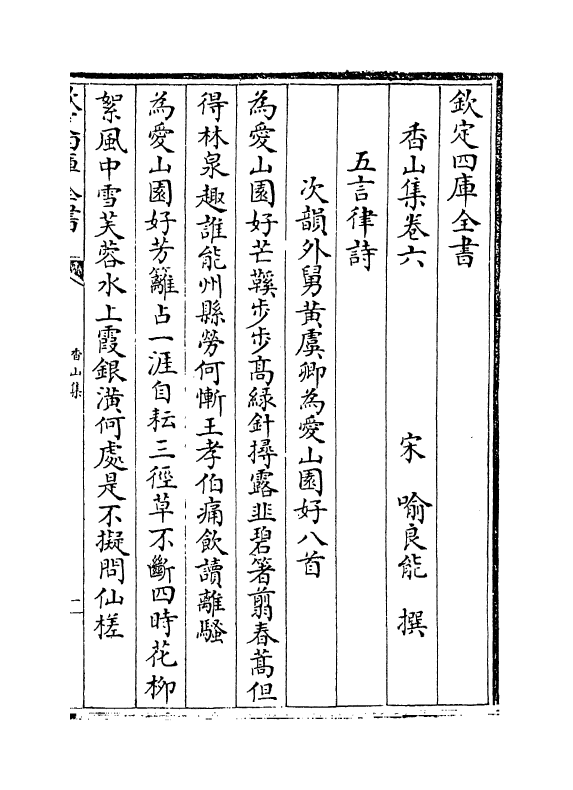 欽定四庫全書
香山集卷六
宋　喻良能　撰
五言律詩
次韻外舅黄虞卿為愛山園好八首
為愛山園好芒鞵步步高緑針撏露韭碧箸翦春蒿但
得林泉趣誰能州縣勞何慚王孝伯痛飲讀離騷
為愛山園好芳籬占一涯自耘三徑草不斷四時花柳
絮風中雪芙蓉水上霞銀潢何處是不擬問仙槎
香山集